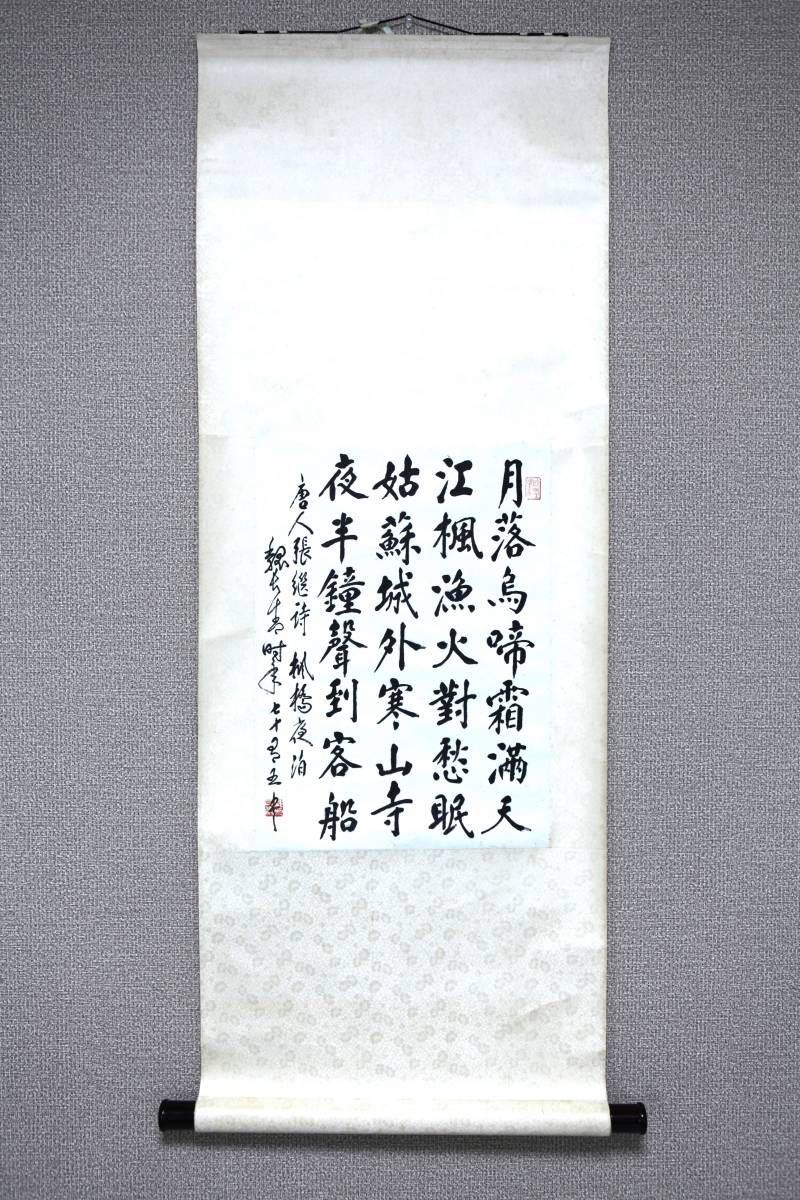 月落烏啼霜滿天
江楓漁火對愁眠
姑蘇城外寒山寺
夜半鐘聲到客船
唐人張继诗 楓橋夜泊
魏长青时年七十有五